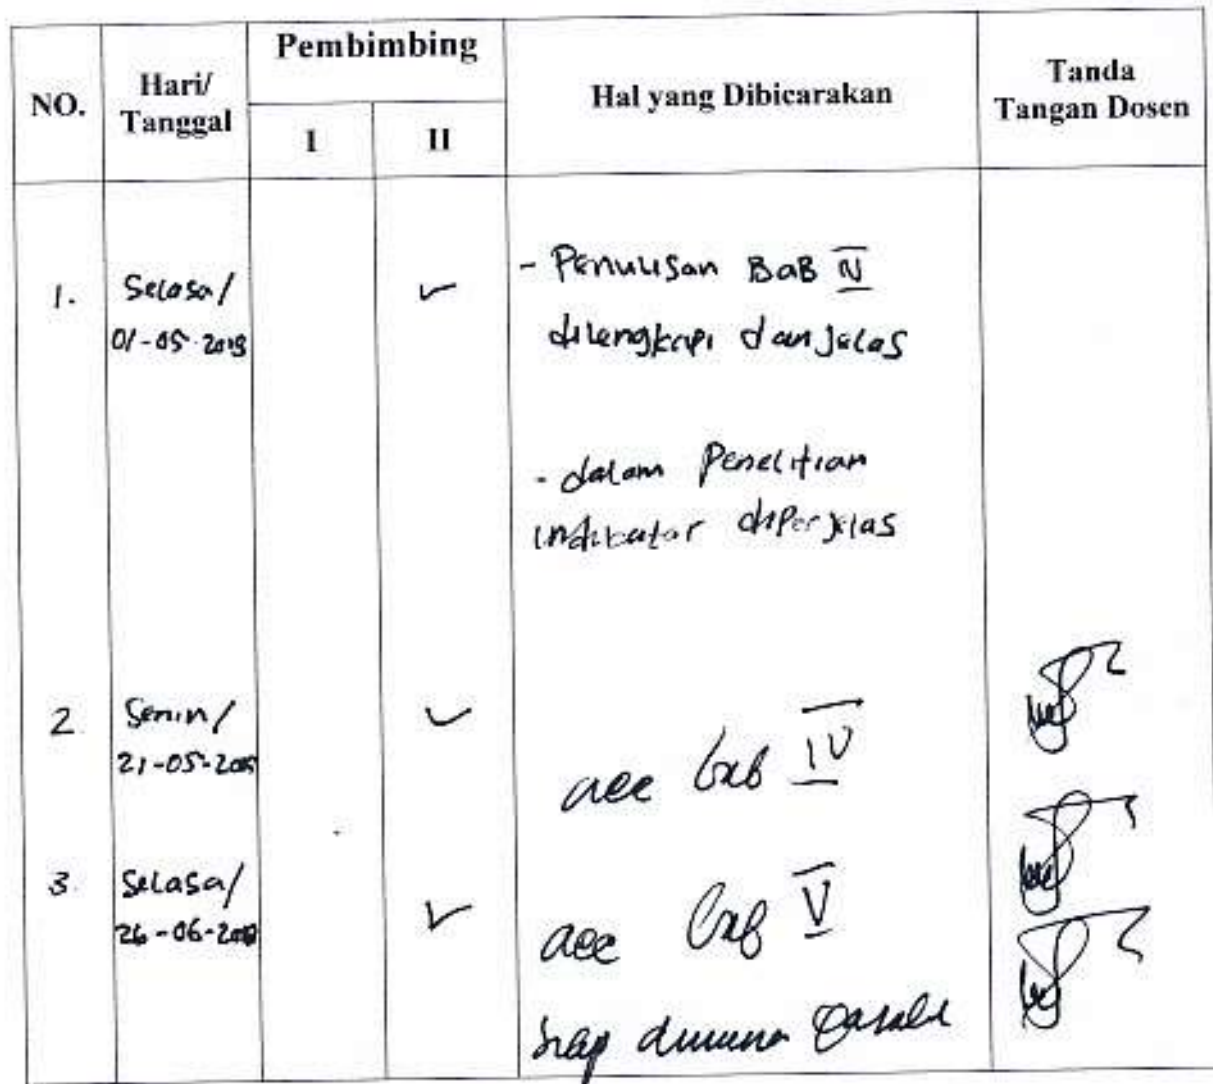 NO.
Hari/
Tanggal
Pembimbing
I
II
Hal yang Dibicarakan
Tanda
Tangan Dosen
1.
Selasa/
01-05-2018
- Penulisan BaB IV
dilengkapi dan jelas
- dalam Penelitian
indikator diperjelas
2.
Senin/
21-05-2018
acc bab IV
3.
Selasa/
26-06-2018
acc bab V
siap